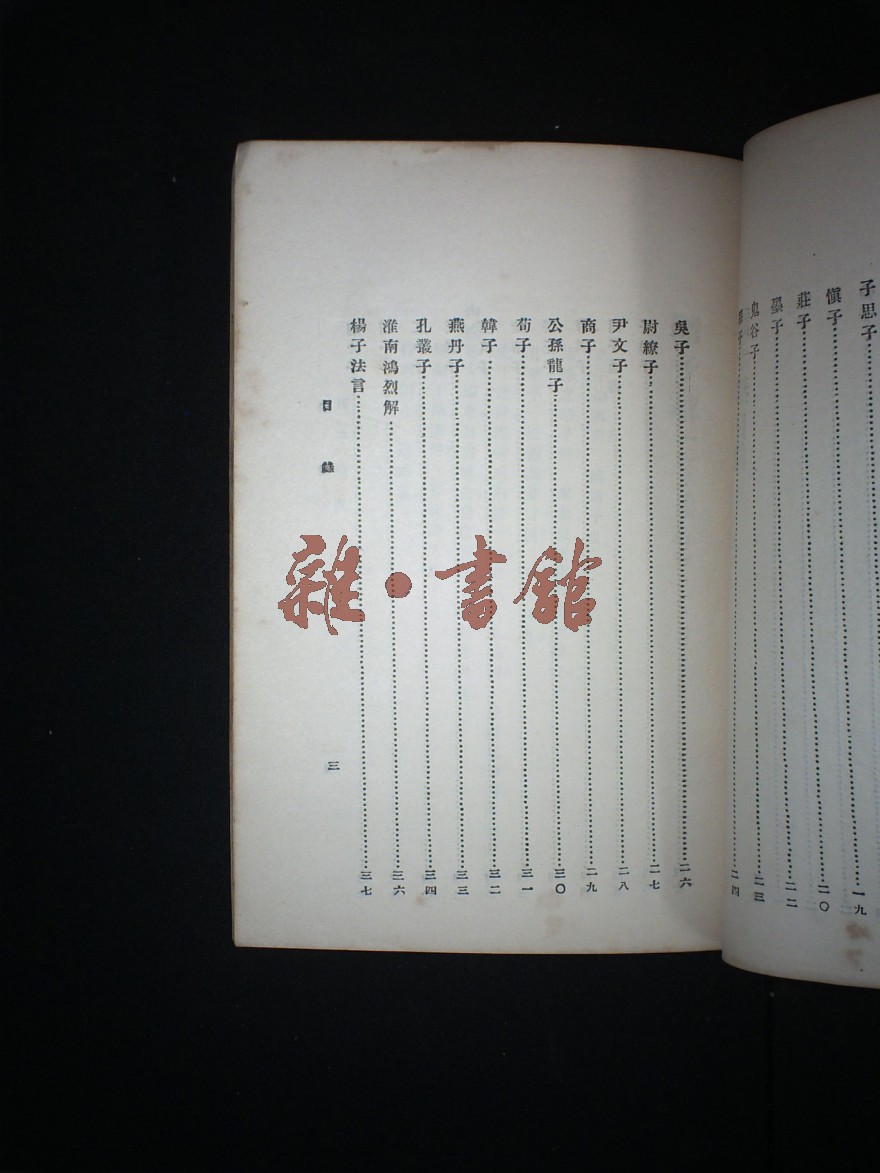 子思子……一九
愼子……二〇
莊子
墨子……二二
鬼谷子……二三
子……二四
吳子……二六
尉繚子……二七
尹文子……二八
商子……二九
公孫龍子……三〇
荀子……三一
韓子……三二
燕丹子……三三
孔叢子……三四
淮南鴻烈解……三六
楊子法言……三七
目錄
三
雜·書館